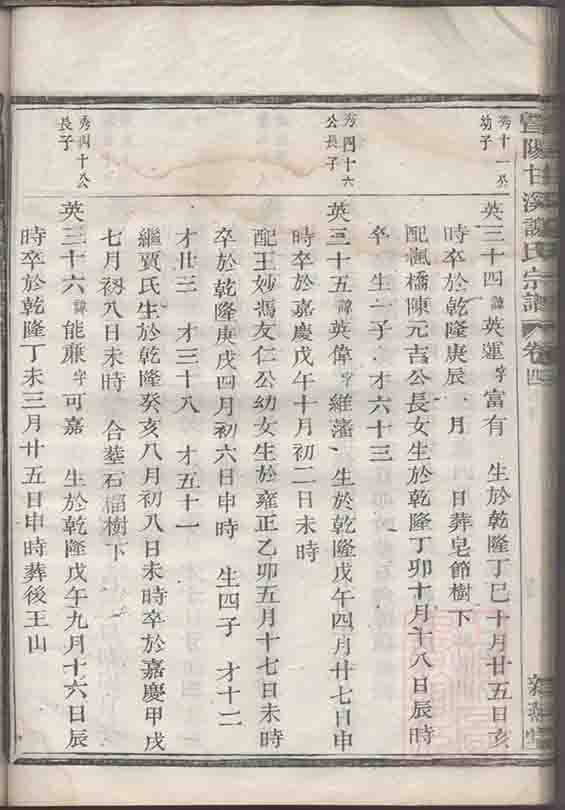 暨陽甘溪譜氏宗譜 卷四
秀十一公
幼子
英三十四諱英運字富有 生於乾隆丁巳十月廿五日亥
時卒於乾隆庚辰 月 日葬皂節樹下
配楓橋陳元吉公長女生於乾隆丁卯十月十八日辰時
卒 生一子 才六十三
秀四十六
公長子
英三十五諱英偉字維藩 生於乾隆戊午四月廿七日申
時卒於嘉慶戊午十月初二日未時
配王妙馮友仁公幼女生於雍正乙卯五月十七日未時
卒於乾隆庚戌四月初六日申時 生四子 才十二
才廿三 才三十八 才五十一
繼賈氏生於乾隆癸亥八月初八日未時卒於嘉慶甲戌
七月初八日未時 合墓石榴樹下
秀四十公
長子
英三十六諱能亷字可嘉 生於乾隆戊午九月十六日辰
時卒於乾隆丁未三月廿五日申時葬後王山